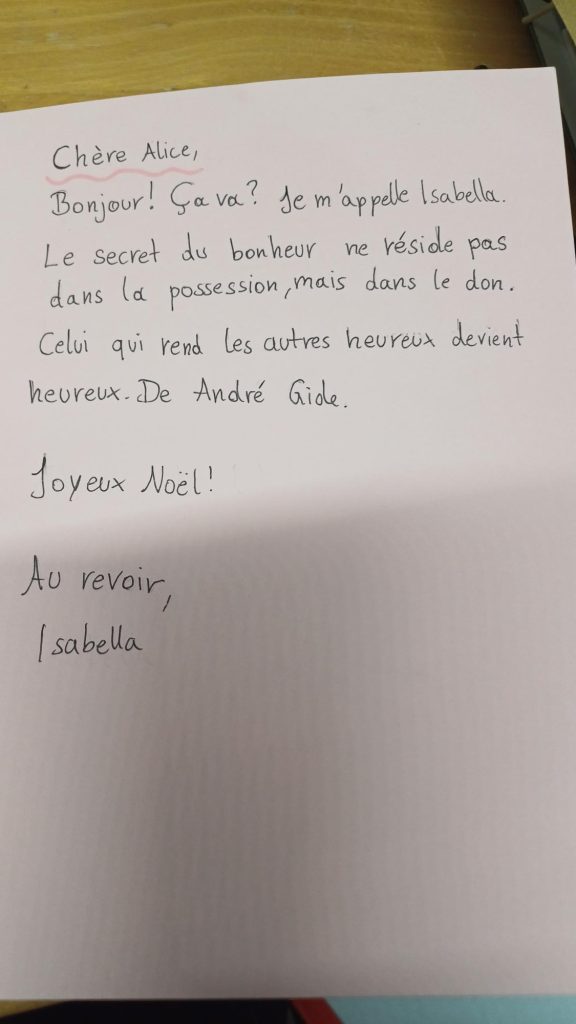 Chère Alice,
Bonjour! Ça va? Je m'appelle Isabella.
Le secret du bonheur ne réside pas
dans la possession, mais dans le don.
Celui qui rend les autres heureux devient
heureux. De André Gide.
Joyeux Noël!
Au revoir,
Isabella